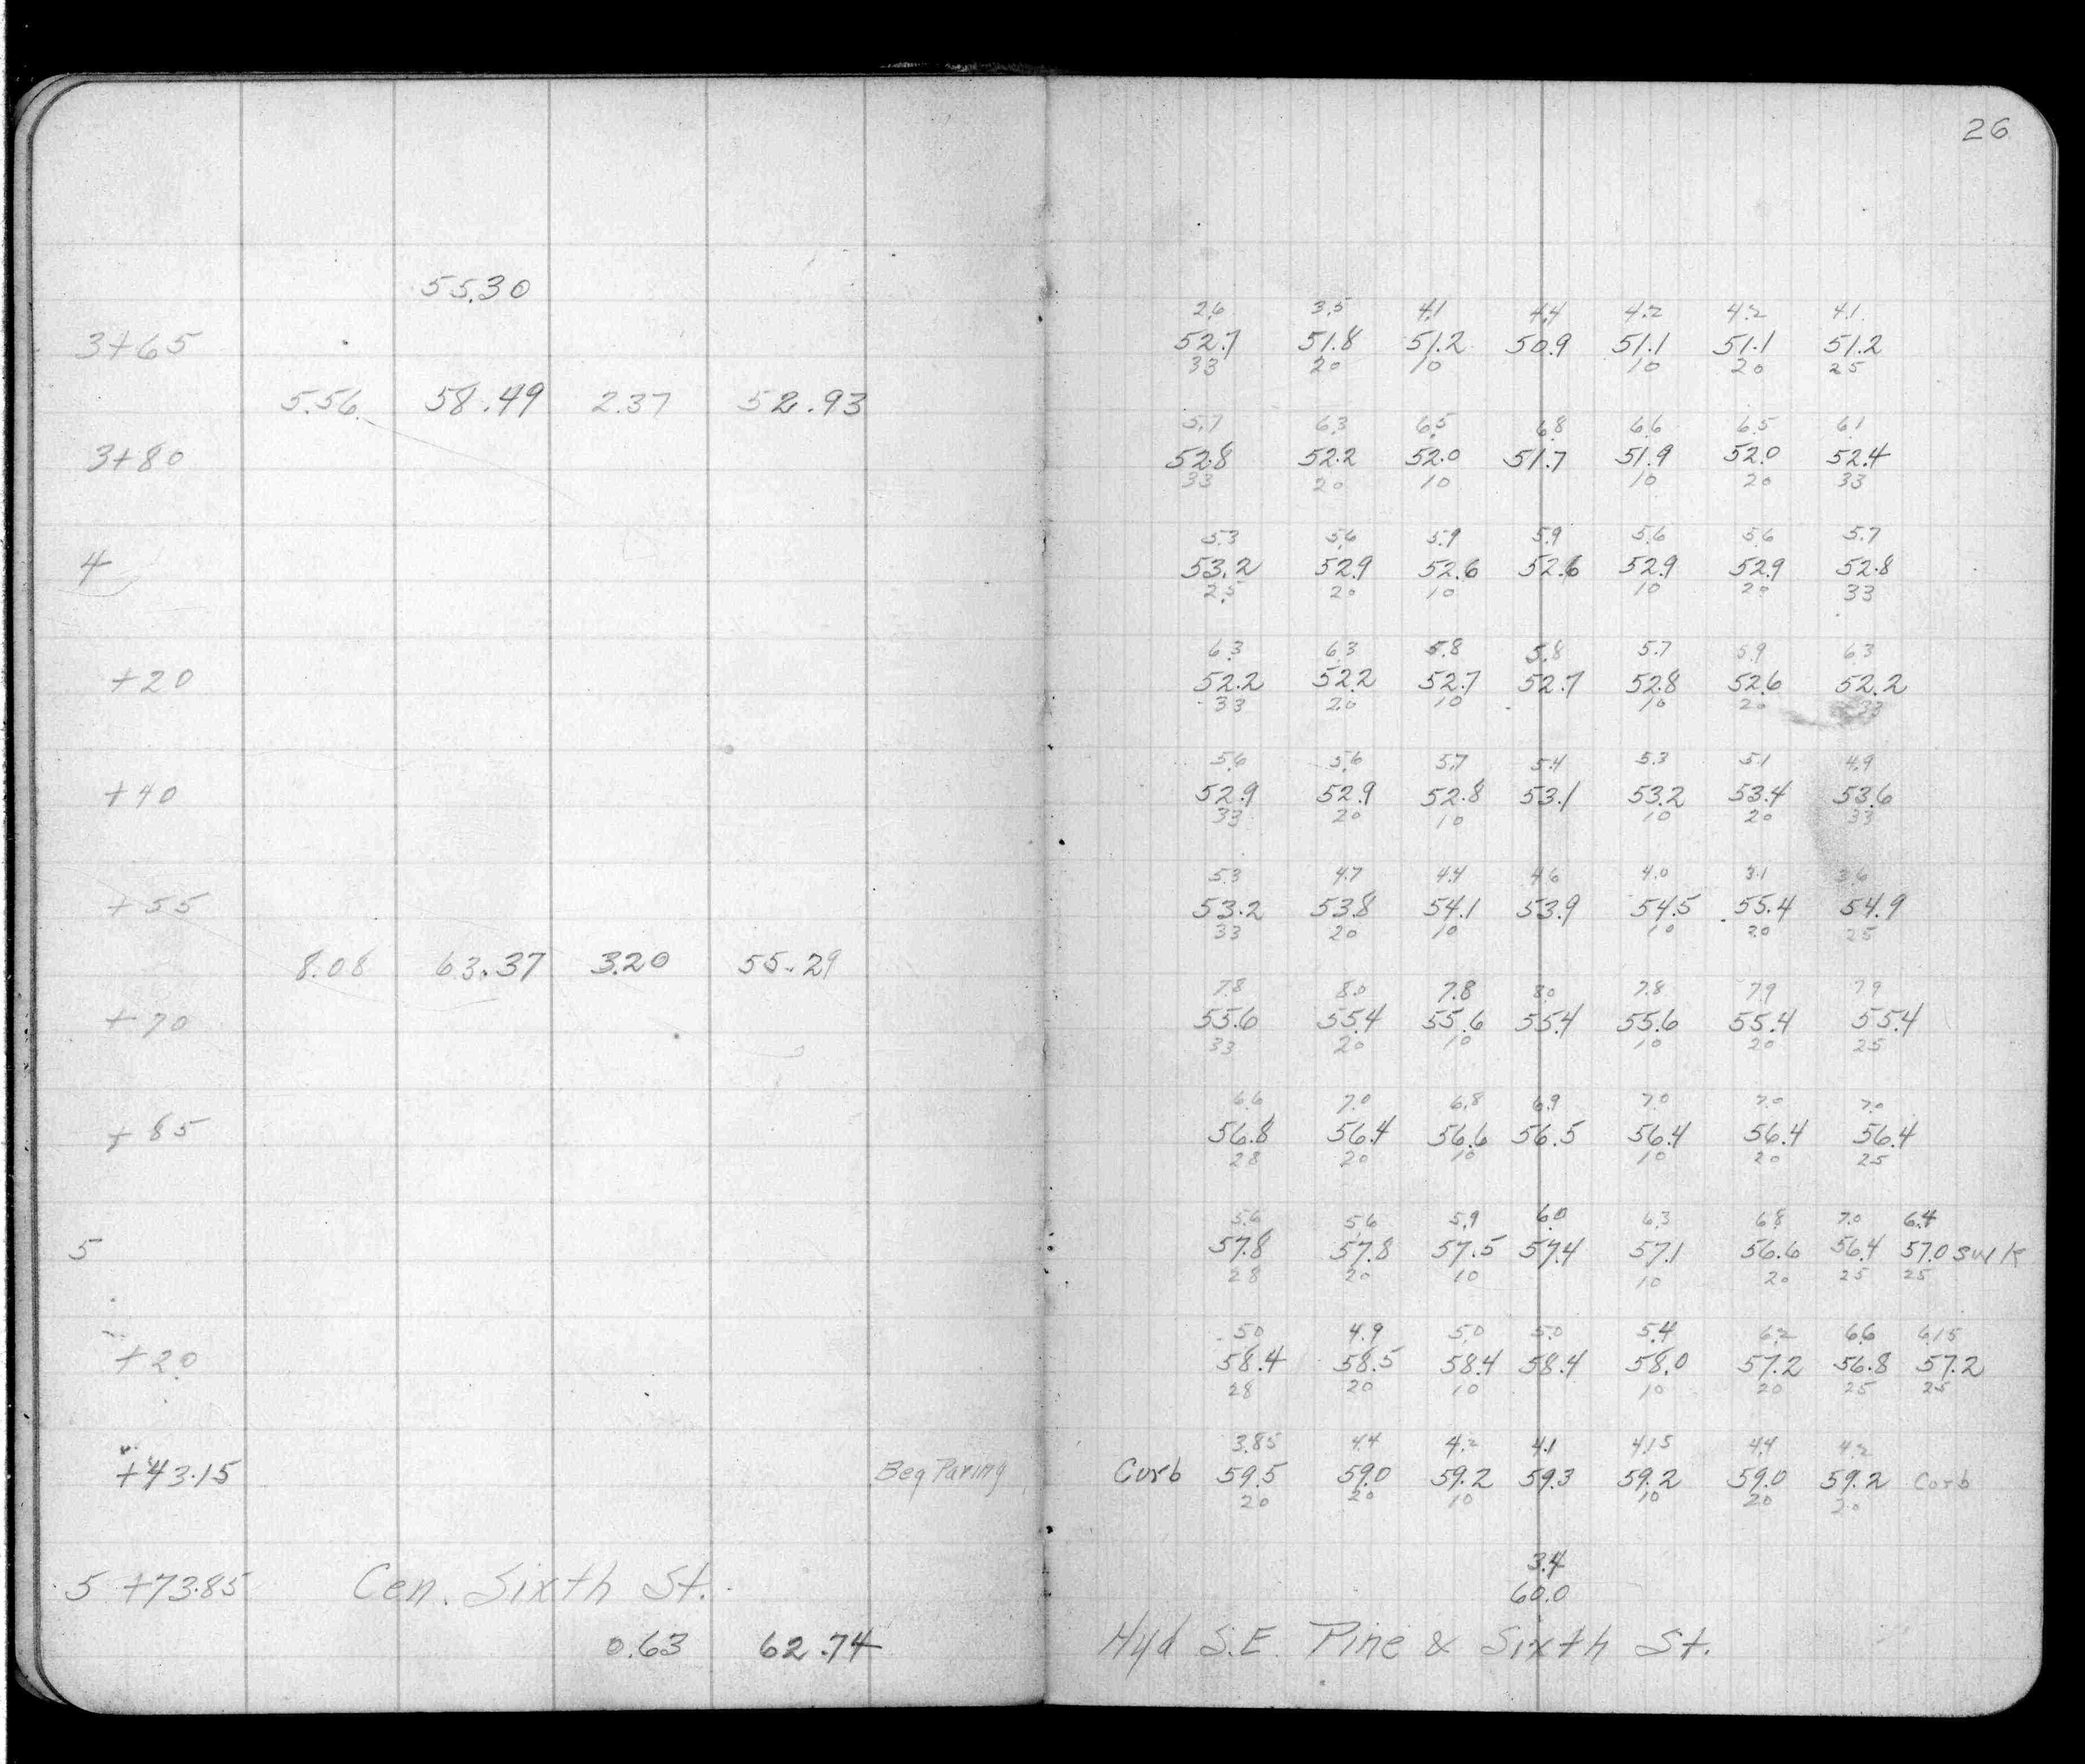 26
55.30
2.6 3.5 4.1 4.4 4.2 4.2 4.1
3+65 52.7 51.8 51.2 50.9 51.1 51.1 51.2
33 20 10 10 20 25
5.56 58.49 2.37 52.93
5.7 6.3 6.5 6.8 6.6 6.5 6.1
3+80 52.8 52.2 52.0 51.7 51.9 52.0 52.4
33 20 10 10 20 33
5.3 5.6 5.9 5.9 5.6 5.6 5.7
4 53.2 52.9 52.6 52.6 52.9 52.9 52.8
25 20 10 10 20 33
6.3 6.3 5.8 5.8 5.7 5.9 6.3
+20 52.2 52.2 52.7 52.7 52.8 52.6 52.2
33 20 10 10 20 33
5.6 5.6 5.7 5.4 5.3 5.1 4.9
+40 52.9 52.9 52.8 53.1 53.2 53.4 53.6
33 20 10 10 20 33
5.3 4.7 4.4 4.6 4.0 3.1 3.6
+55 53.2 53.8 54.1 53.9 54.5 55.4 54.9
33 20 10 10 20 25
8.08 63.37 3.20 55.29
7.8 8.0 7.8 8.0 7.8 7.9 7.9
+70 55.6 55.4 55.6 55.4 55.6 55.4 55.4
33 20 10 10 20 25
6.6 7.0 6.8 6.9 7.0 7.0 7.0
+85 56.8 56.4 56.6 56.5 56.4 56.4 56.4
28 20 10 10 20 25
5.6 5.6 5.9 6.0 6.3 6.8 7.0 6.4
5 57.8 57.8 57.5 57.4 57.1 56.6 56.4 57.0 swlk
28 20 10 10 20 25 25
5.0 4.9 5.0 5.0 5.4 6.2 6.6 6.15
+20 58.4 58.5 58.4 58.4 58.0 57.2 56.8 57.2
28 20 10 10 20 25 25
3.85 4.4 4.2 4.1 4.15 4.4 4.2
+43.15 Beg Paving Curb 59.5 59.0 59.2 59.3 59.2 59.0 59.2 Curb
20 20 10 10 20 20
3.4
5 +73.85 Cen. Sixth St. 60.0
0.63 62.74 Hyd S.E. Pine & Sixth St.